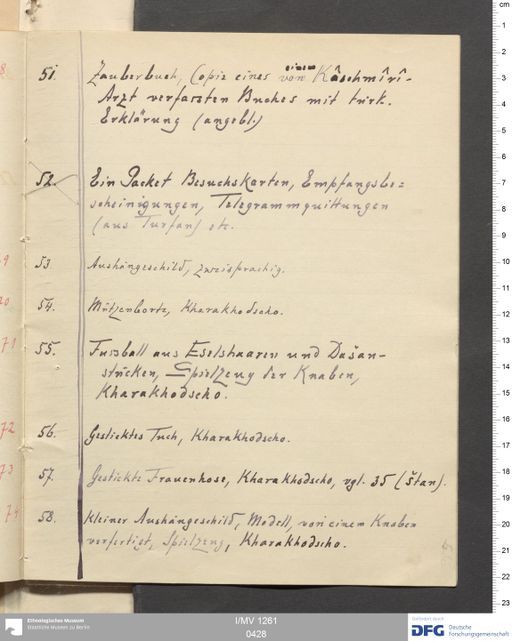 51. Zauberbuch, Copie eines von einem Kâschmîrî-
Arzt verfassten Buches mit türk.
Erklärung (angebl.)
52. Ein Packet Besuchskarten, Empfangsbe=
scheinigungen, Telegrammquittungen
(aus Turfan) etc.
53. Aushängeschild, zweisprachig.
54. Mützenborte, Kharakhodscho.
55. Fussball aus Eselshaaren und Dašan-
stücken, Spielzeug der Knaben,
Kharakhodscho.
56. Gesticktes Tuch, Kharakhodscho.
57. Gestickte Frauenhose, Kharakhodscho, vgl. 35 (štan).
58. Kleiner Aushängeschild, Modell, von einem Knaben
verfertigt, Spielzeug, Kharakhodscho.
71
72
73
74
cm
1
2
3
4
5
6
7
8
9
10
11
12
13
14
15
16
17
18
19
20
21
22
23
Ethnologisches Museum
Staatliche Museen zu Berlin
I/MV 1261
0428
Gefördert durch
DFG Deutsche
Forschungsgemeinschaft